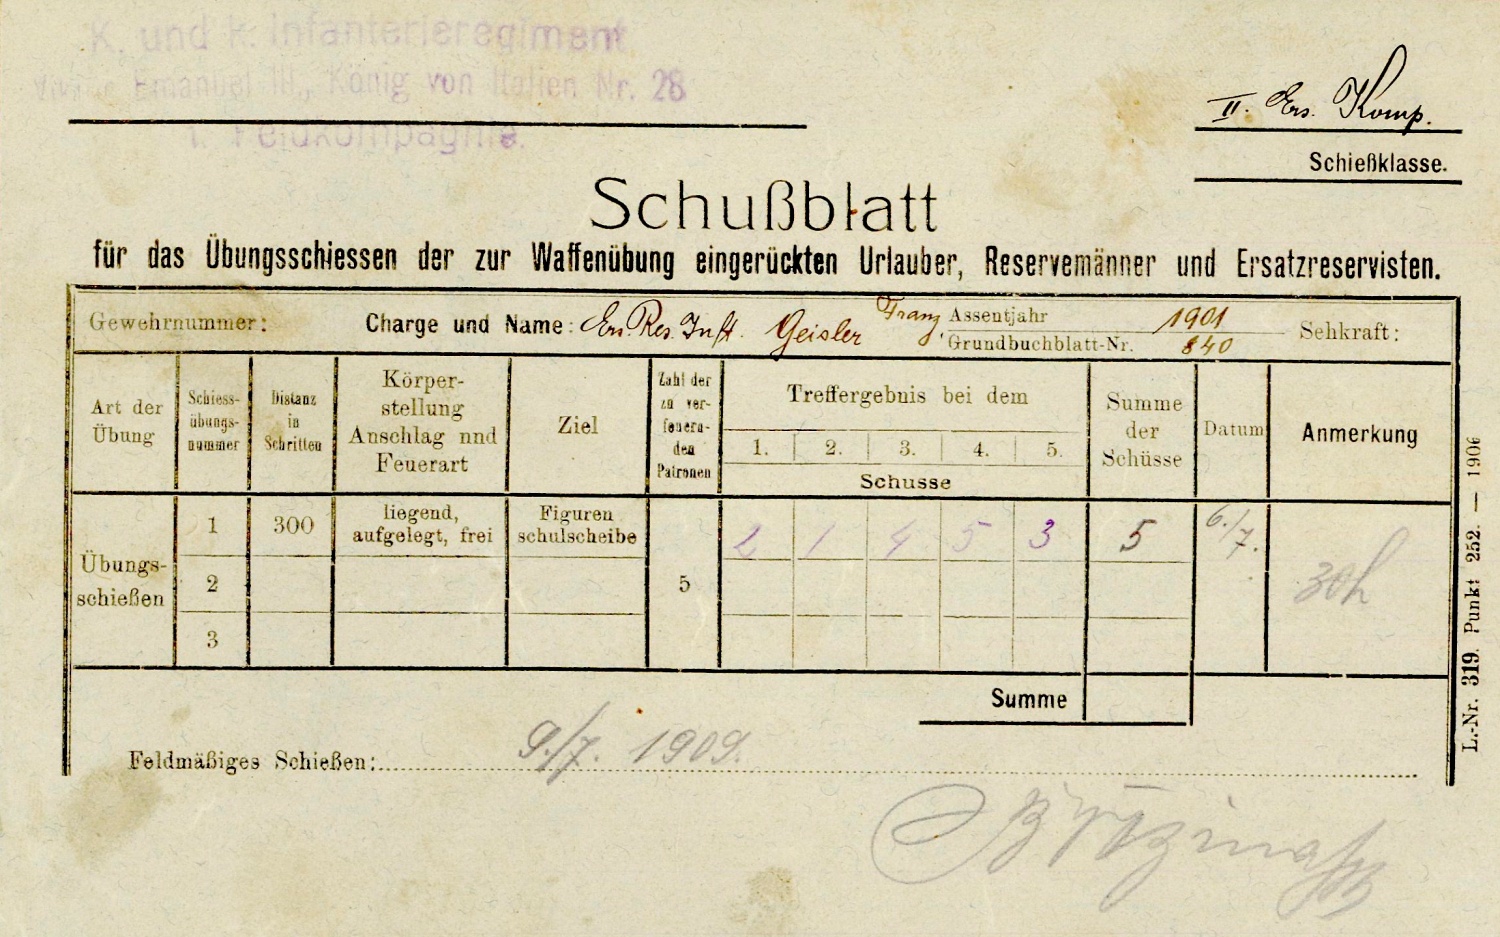 K. und k. Infanterieregiment
Emanuel III., König von Italien Nr. 28
1. Feldkompagnie.
II. Ers. Komp.
Schießklasse.
Schußblatt
für das Übungsschiessen der zur Waffenübung eingerückten Urlauber, Reservemänner und Ersatzreservisten.
Gewehrnummer: Charge und Name: Ers. Res. Inft. Geisler Franz Assentjahr 1901 Sehkraft:
Grundbuchblatt-Nr. 840
Art der Übung
Schiess-übungs-nummer
Distanz in Schritten
Körper-stellung Anschlag nnd Feuerart
Ziel
Zahl der zu ver-feuern-den Patronen
Treffergebnis bei dem
1. 2. 3. 4. 5.
Schusse
Summe der Schüsse
Datum
Anmerkung
Übungs-schießen
1 300 liegend, aufgelegt, frei Figuren schulscheibe 2 1 4 5 3 5 6./7.
2 5 30h
3
Summe
Feldmäßiges Schießen: 9./7. 1909.
L.-Nr. 319. Punkt 252. — 1906